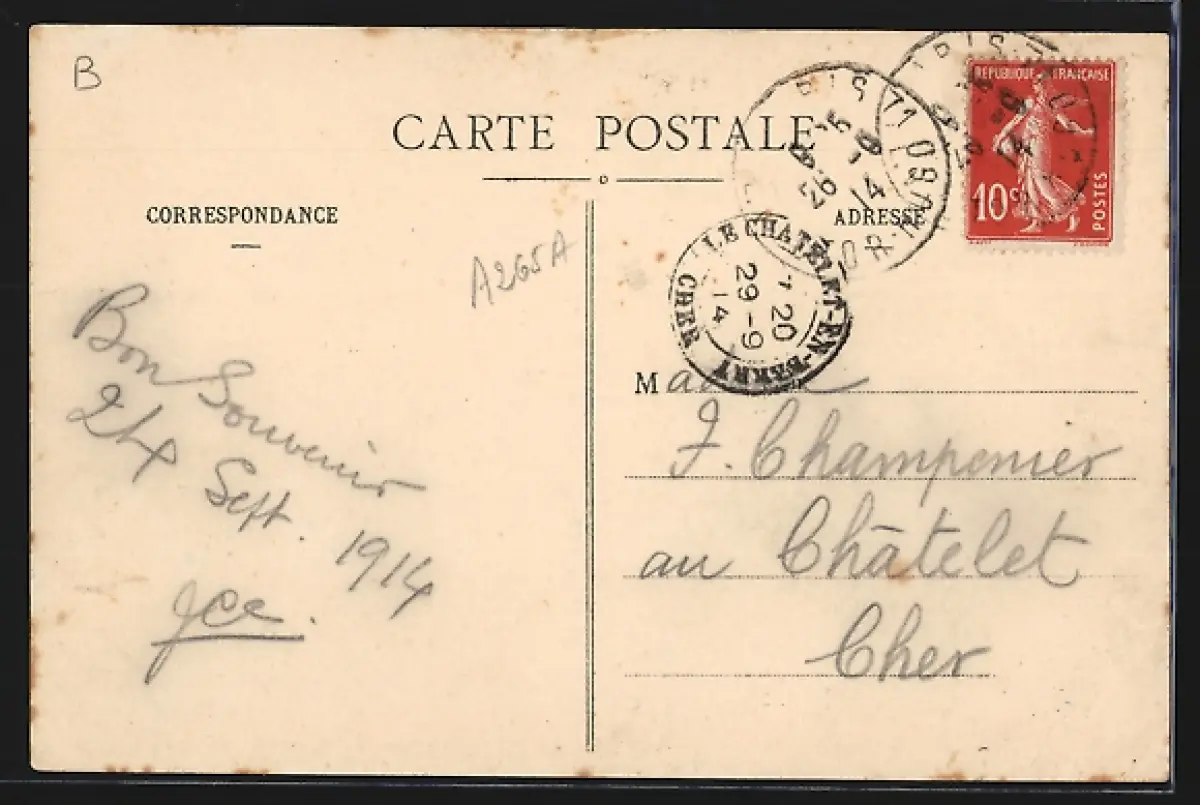 B
CARTE POSTALE
CORRESPONDANCE
ADRESSE
RÉPUBLIQUE FRANÇAISE
10 c
POSTES
26-9
14
LE CHATELET-EN-BERRY
CHER
20
29-9
14
A265A
Bon Souvenir
24 Sept. 1914
M
F. Champenier
au Châtelet
Cher